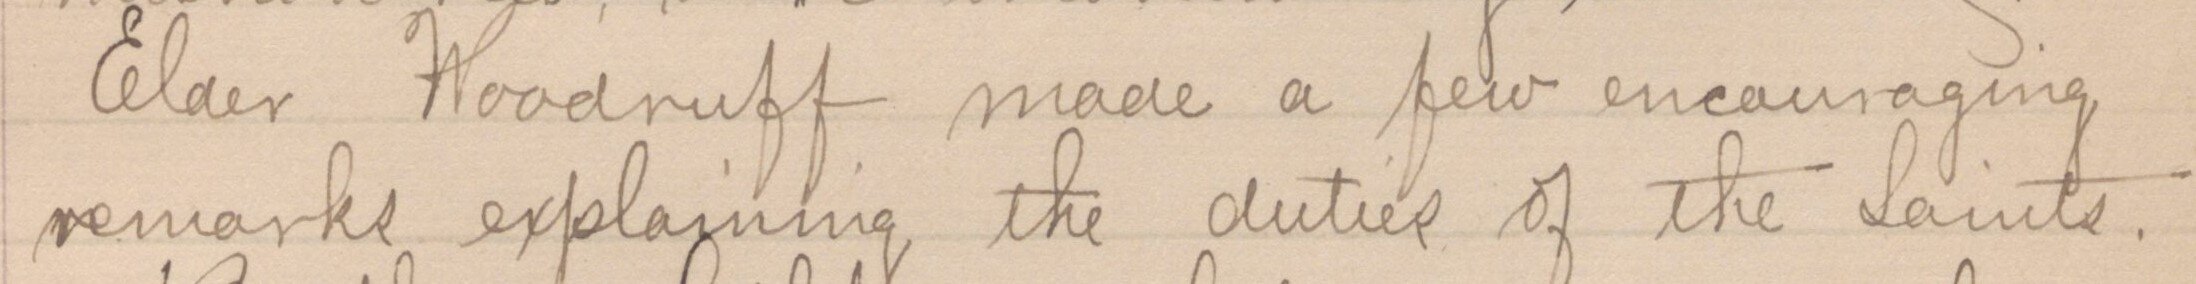 Elder Woodruff made a few encouraging
remarks explaining the duties of the Saints.